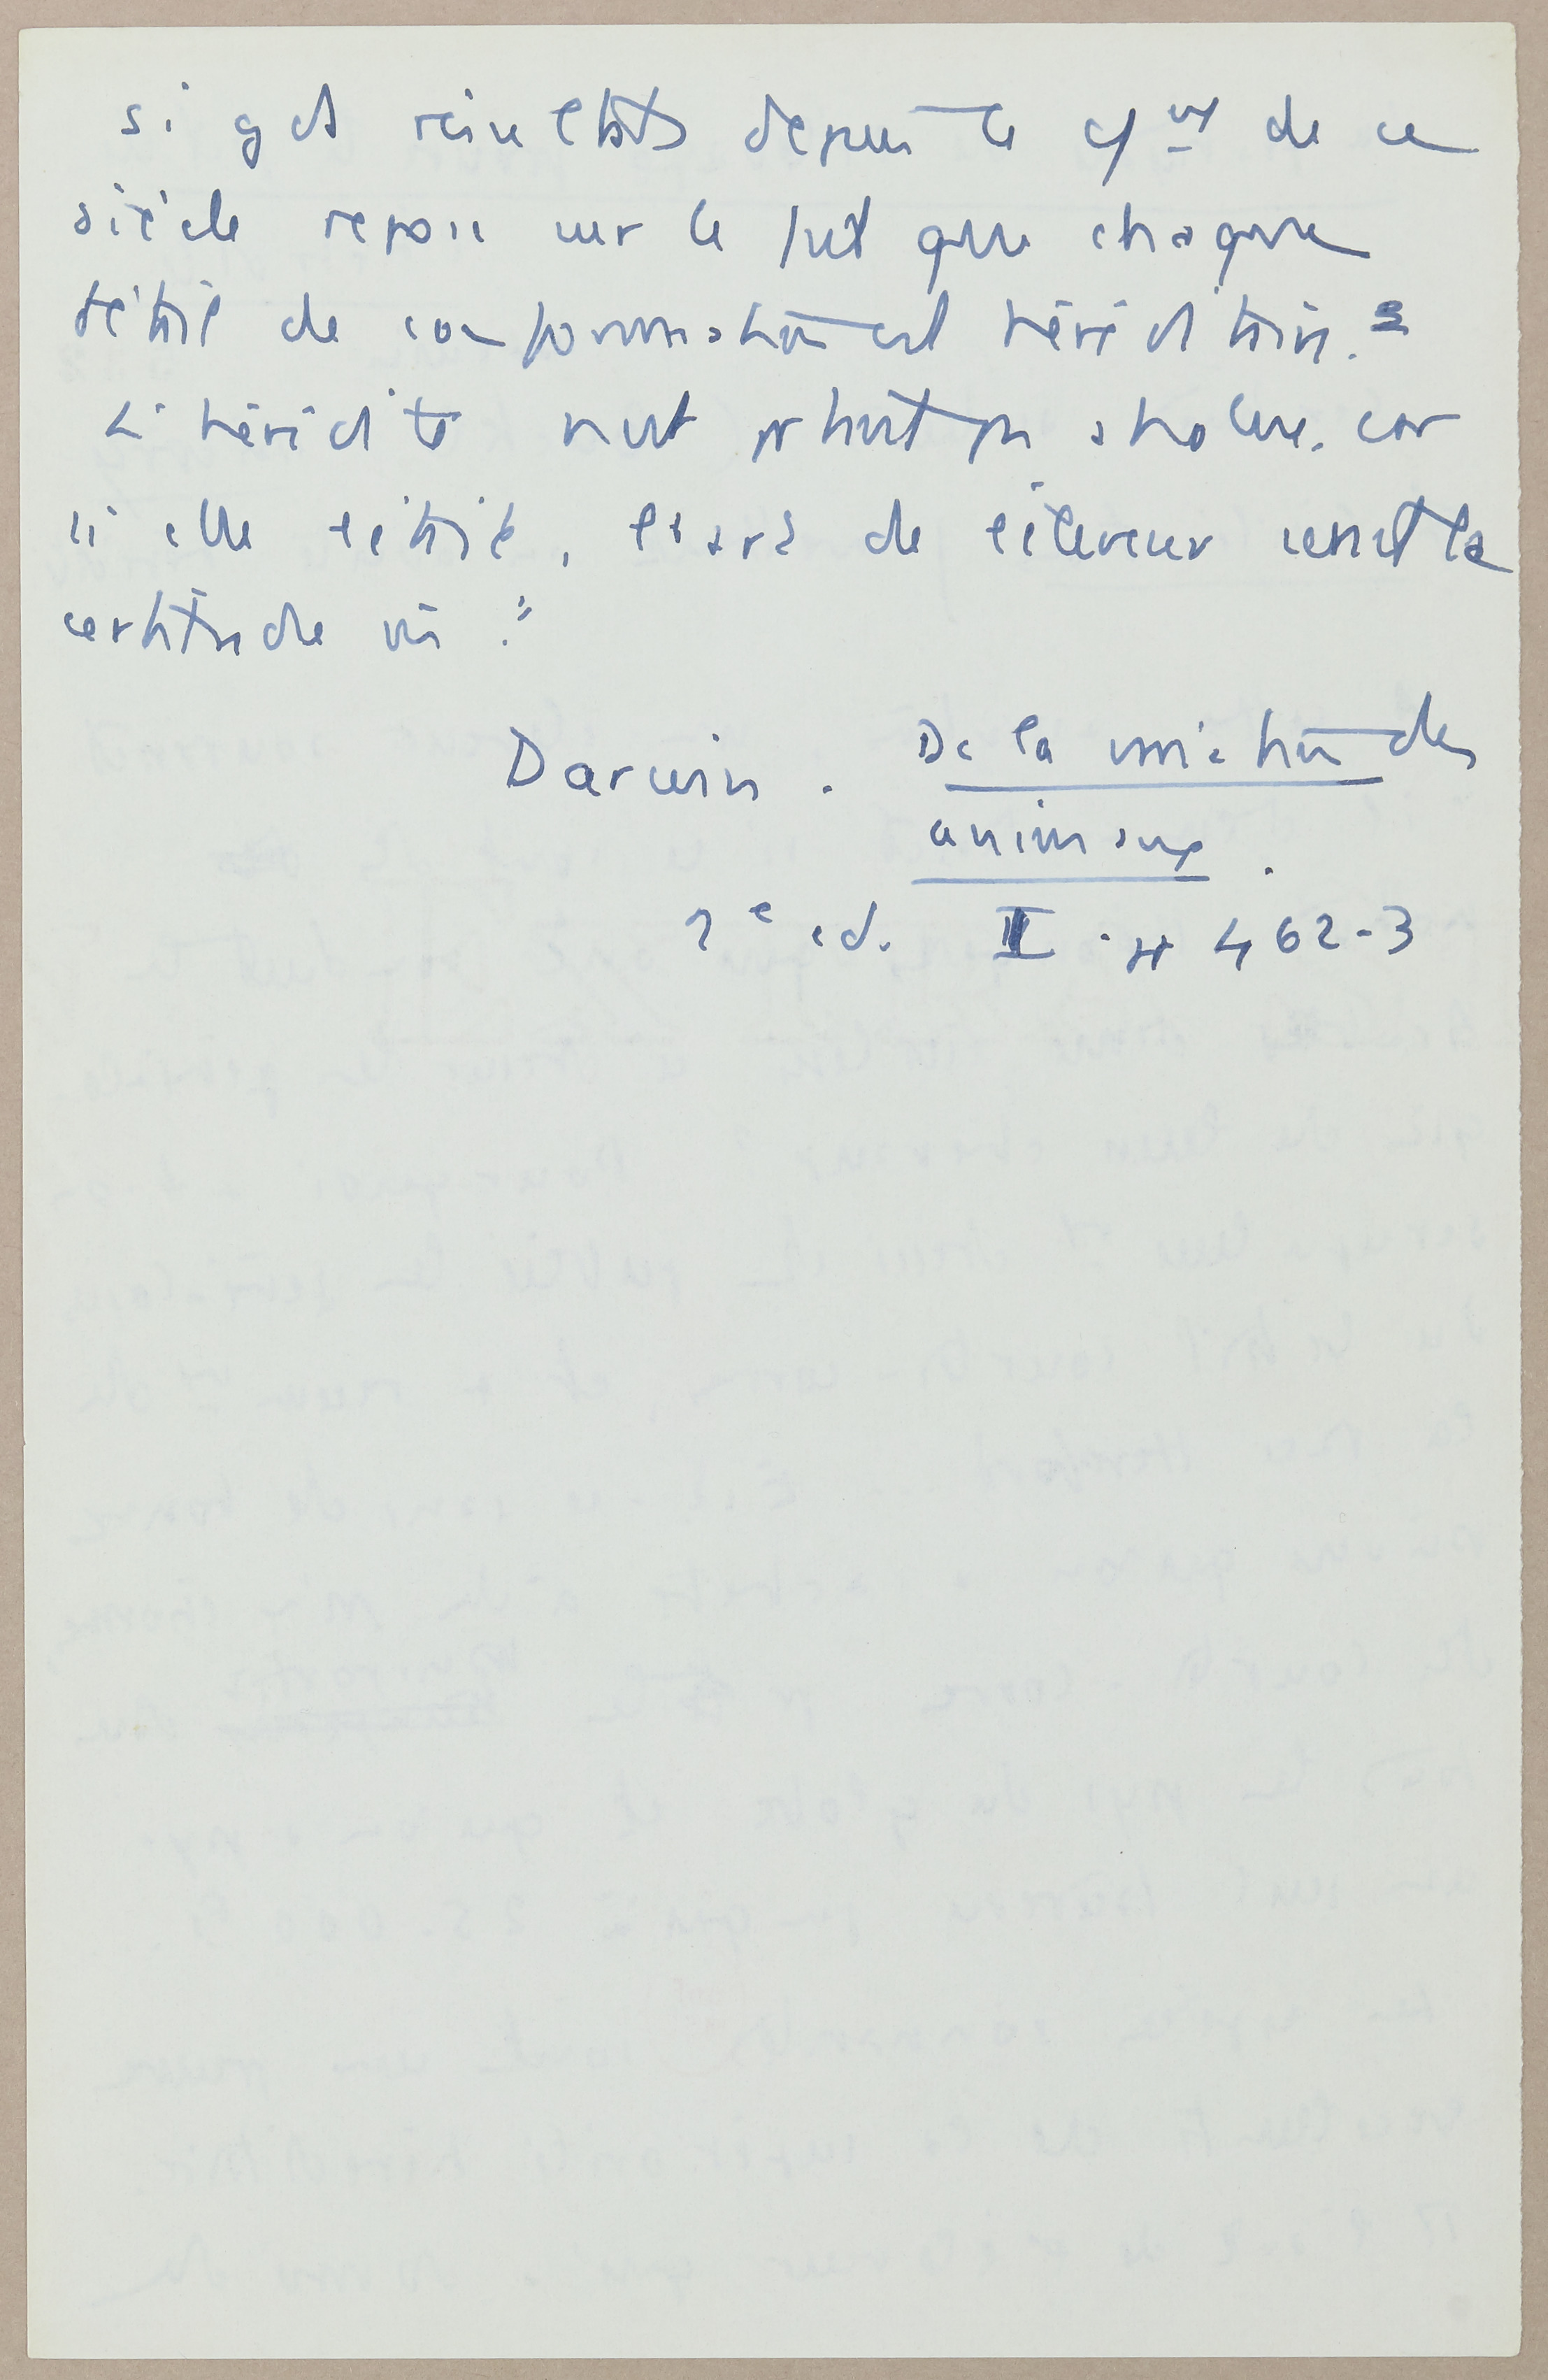 si gds résultats depuis le cpmt de ce
siècle repose sur le fait que chaque
détail de conformation est héréditaire.
L'hérédité n'est pourtant pas absolue, car
si elle l'était, l'art de l'éleveur serait la
certitude
Darwin. De la variation des
animaux.
2e ed. II. pp 462-3